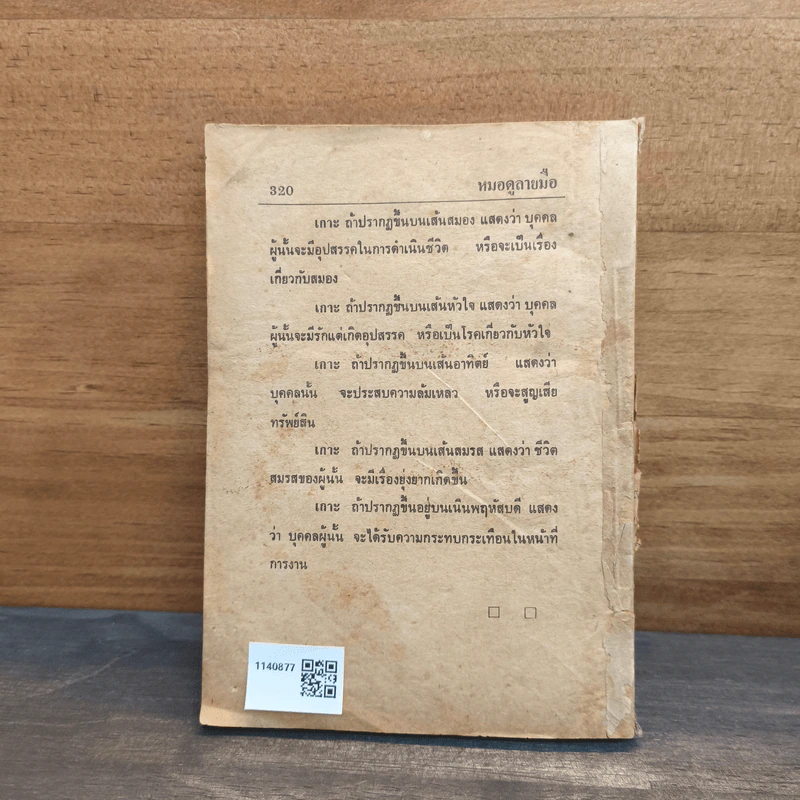 320 หมอดูลายมือ
เกาะ ถ้าปรากฏขึ้นบนเส้นสมอง แสดงว่า บุคคล
ผู้นั้นจะมีอุปสรรคในการดำเนินชีวิต หรือจะเป็นเรื่อง
เกี่ยวกับสมอง
เกาะ ถ้าปรากฏขึ้นบนเส้นหัวใจ แสดงว่า บุคคล
ผู้นั้นจะมีรักแต่เกิดอุปสรรค หรือเป็นโรคเกี่ยวกับหัวใจ
เกาะ ถ้าปรากฏขึ้นบนเส้นอาทิตย์ แสดงว่า
บุคคลนั้น จะประสบความล้มเหลว หรือจะสูญเสีย
ทรัพย์สิน
เกาะ ถ้าปรากฏขึ้นบนเส้นสมรส แสดงว่า ชีวิต
สมรสของผู้นั้น จะมีเรื่องยุ่งยากเกิดขึ้น
เกาะ ถ้าปรากฏขึ้นอยู่บนเนินพฤหัสบดี แสดง
ว่า บุคคลผู้นั้น จะได้รับความกระทบกระเทือนในหน้าที่
การงาน
1140877